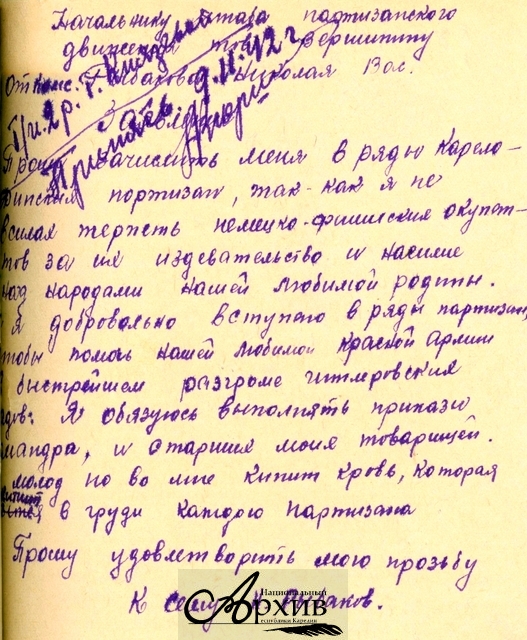 Начальнику штаба партизанского
движения тов. Вершинину
От комс. Николая Вас.
Заявление
Принять 9.11.42 г.
Прошу зачислить меня в ряды Карело-
финских портизан, так-как я не
всилах терпеть немецко-фишиских окупат-
тов за их издевательство и насилие
над народами нашей любимой родины.
я добровольно вступаю в ряды партизан,
чтобы помочь нашей любимой красной армии
быстрейшем разгроме гитлеровских
Я обязуюсь выполнять приказы
мандра, и старших моих товарищей.
молод но во мне кипит кровь, которая
кипит в груди каждого партизана
Прошу удовлетворить мою прозьбу
К сему
Национальный
Архив
республики Карелии